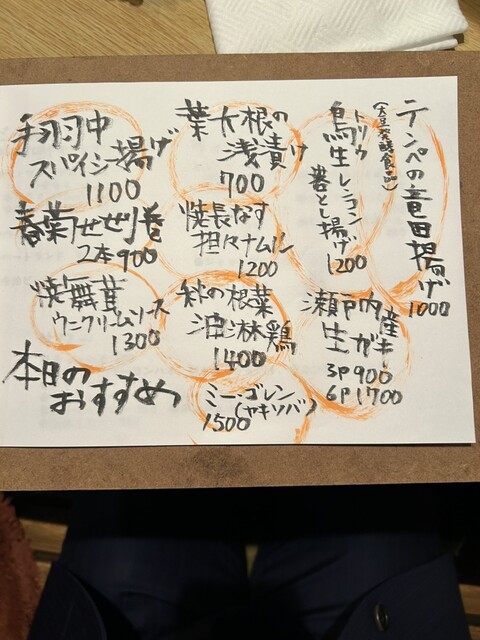 テンペの竜田揚げ
(大豆発酵食品)
1000
鳥トリュフ
生レンコン
落とし揚げ
1200
瀬戸内産
生ガキ
3P 900
6P 1700
葉大根の
浅漬け
700
焼長なす
担々ナムル
1200
秋の根菜
油淋鶏
1400
ミー・ゴレン
(ヤキソバ)
1500
手羽中
スパイシー揚げ
1100
春菊チヂミ巻
2本900
焼舞茸
ウニクリームソース
1300
本日の
おすすめ